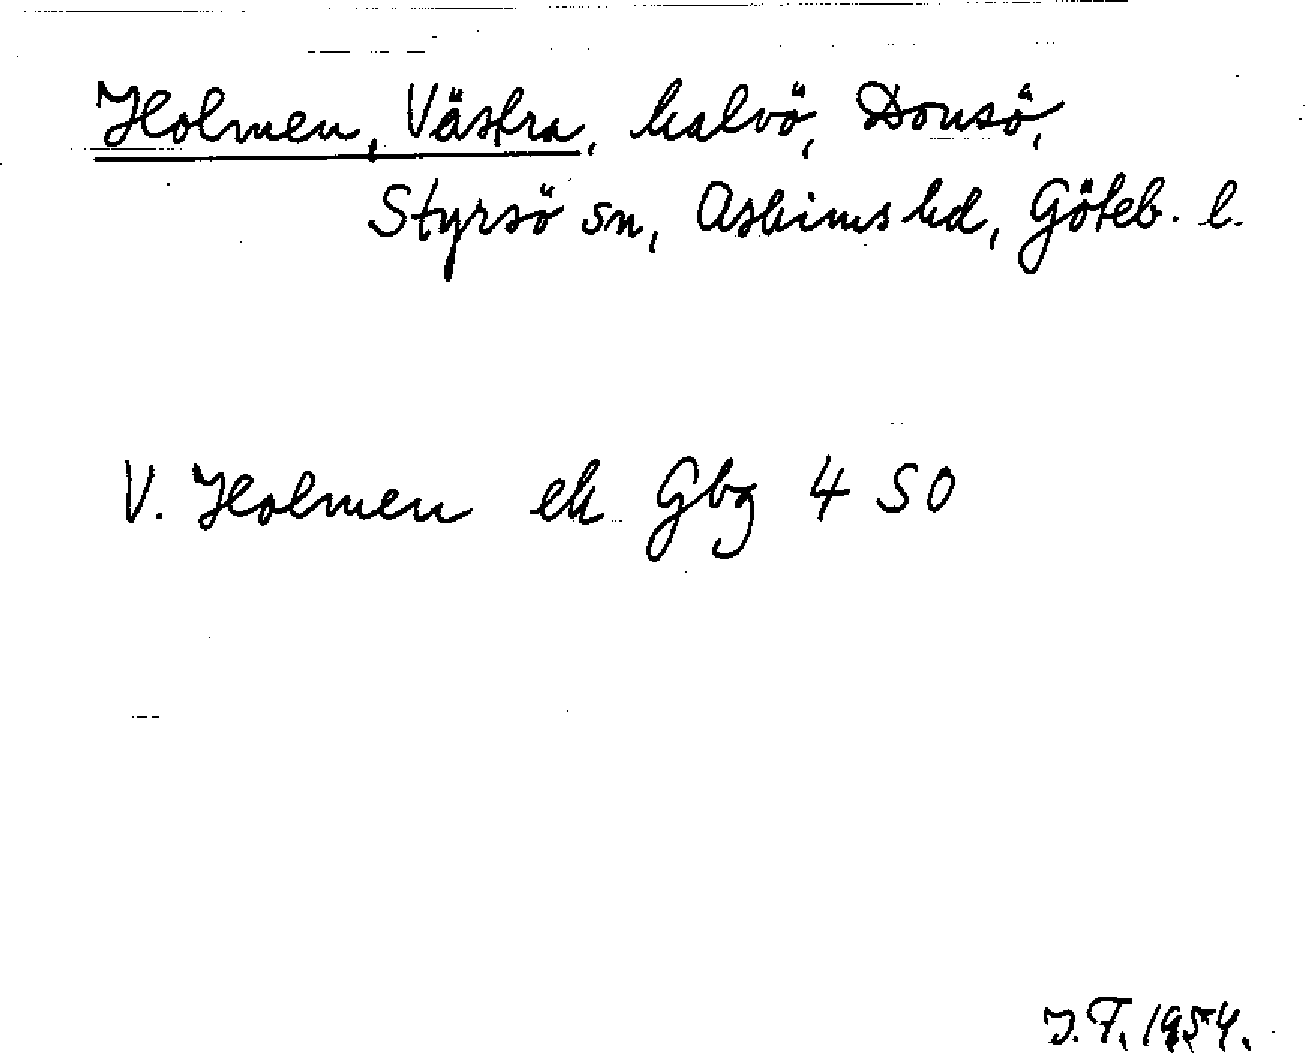 Holmen, Västra, halvö, Donsö,
Styrsö sn, Askims hd, Göteb. l.
V. Holmen ek Gbg 4 SO
J.F. 1954.